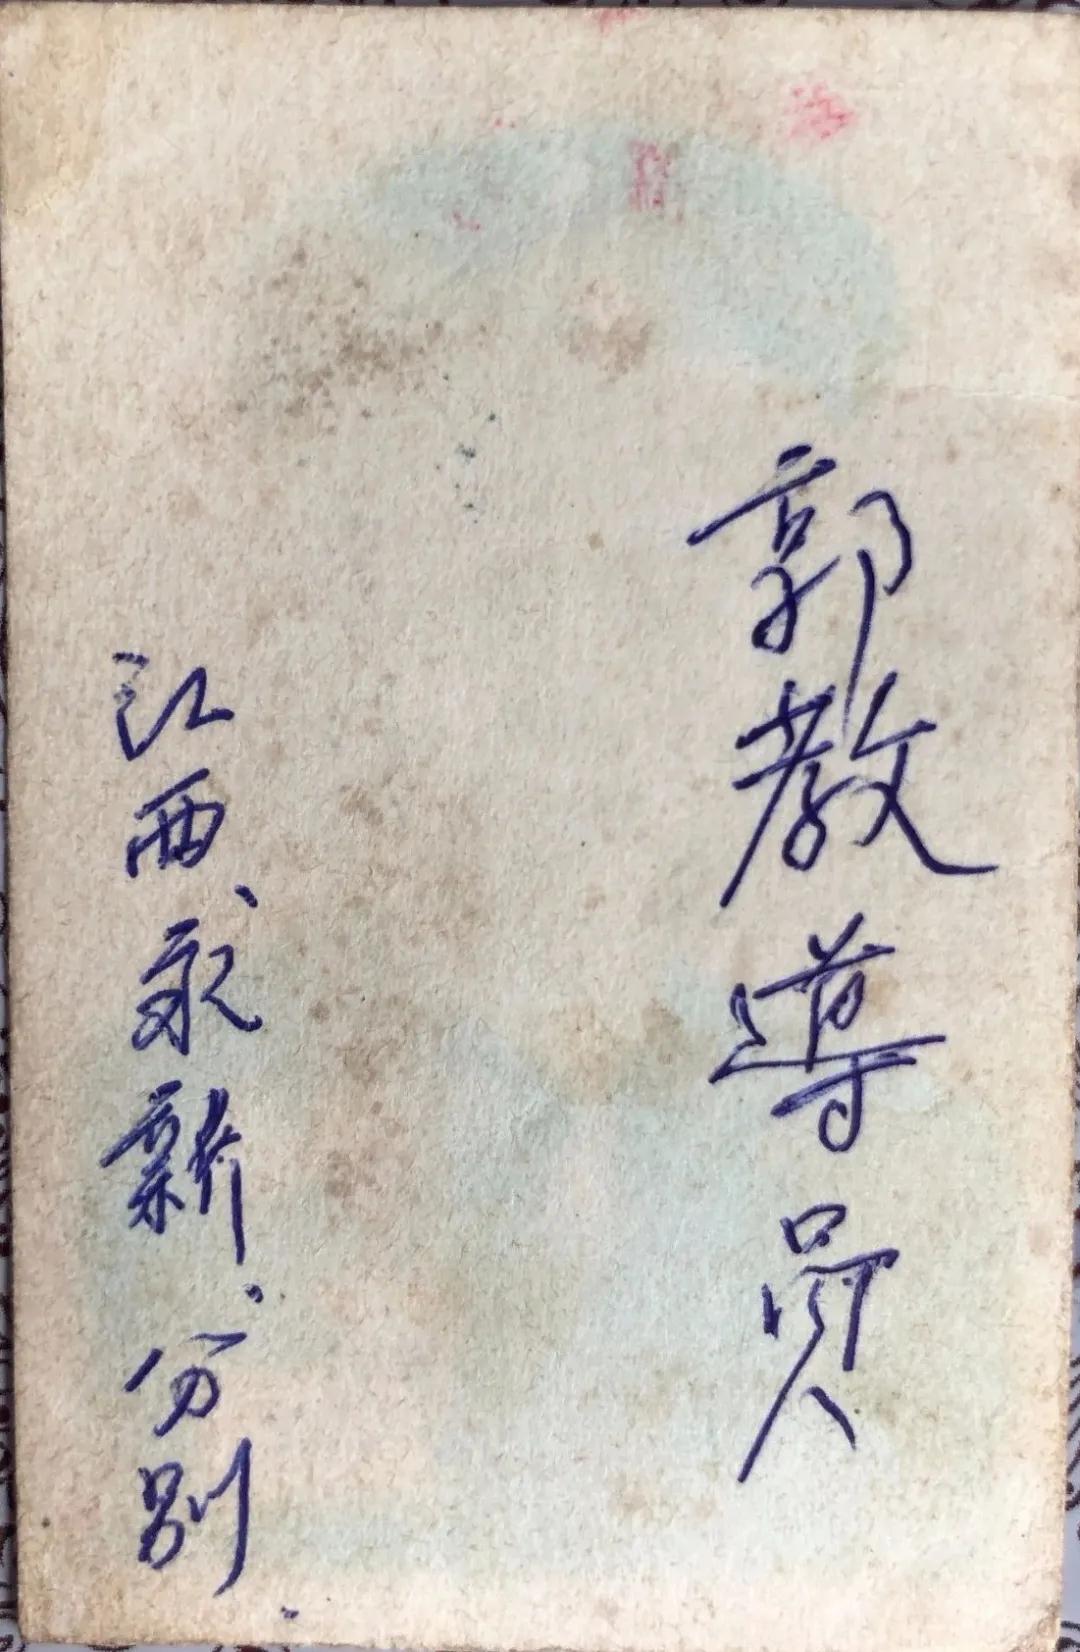 郭教导员
江西、永新.分别.